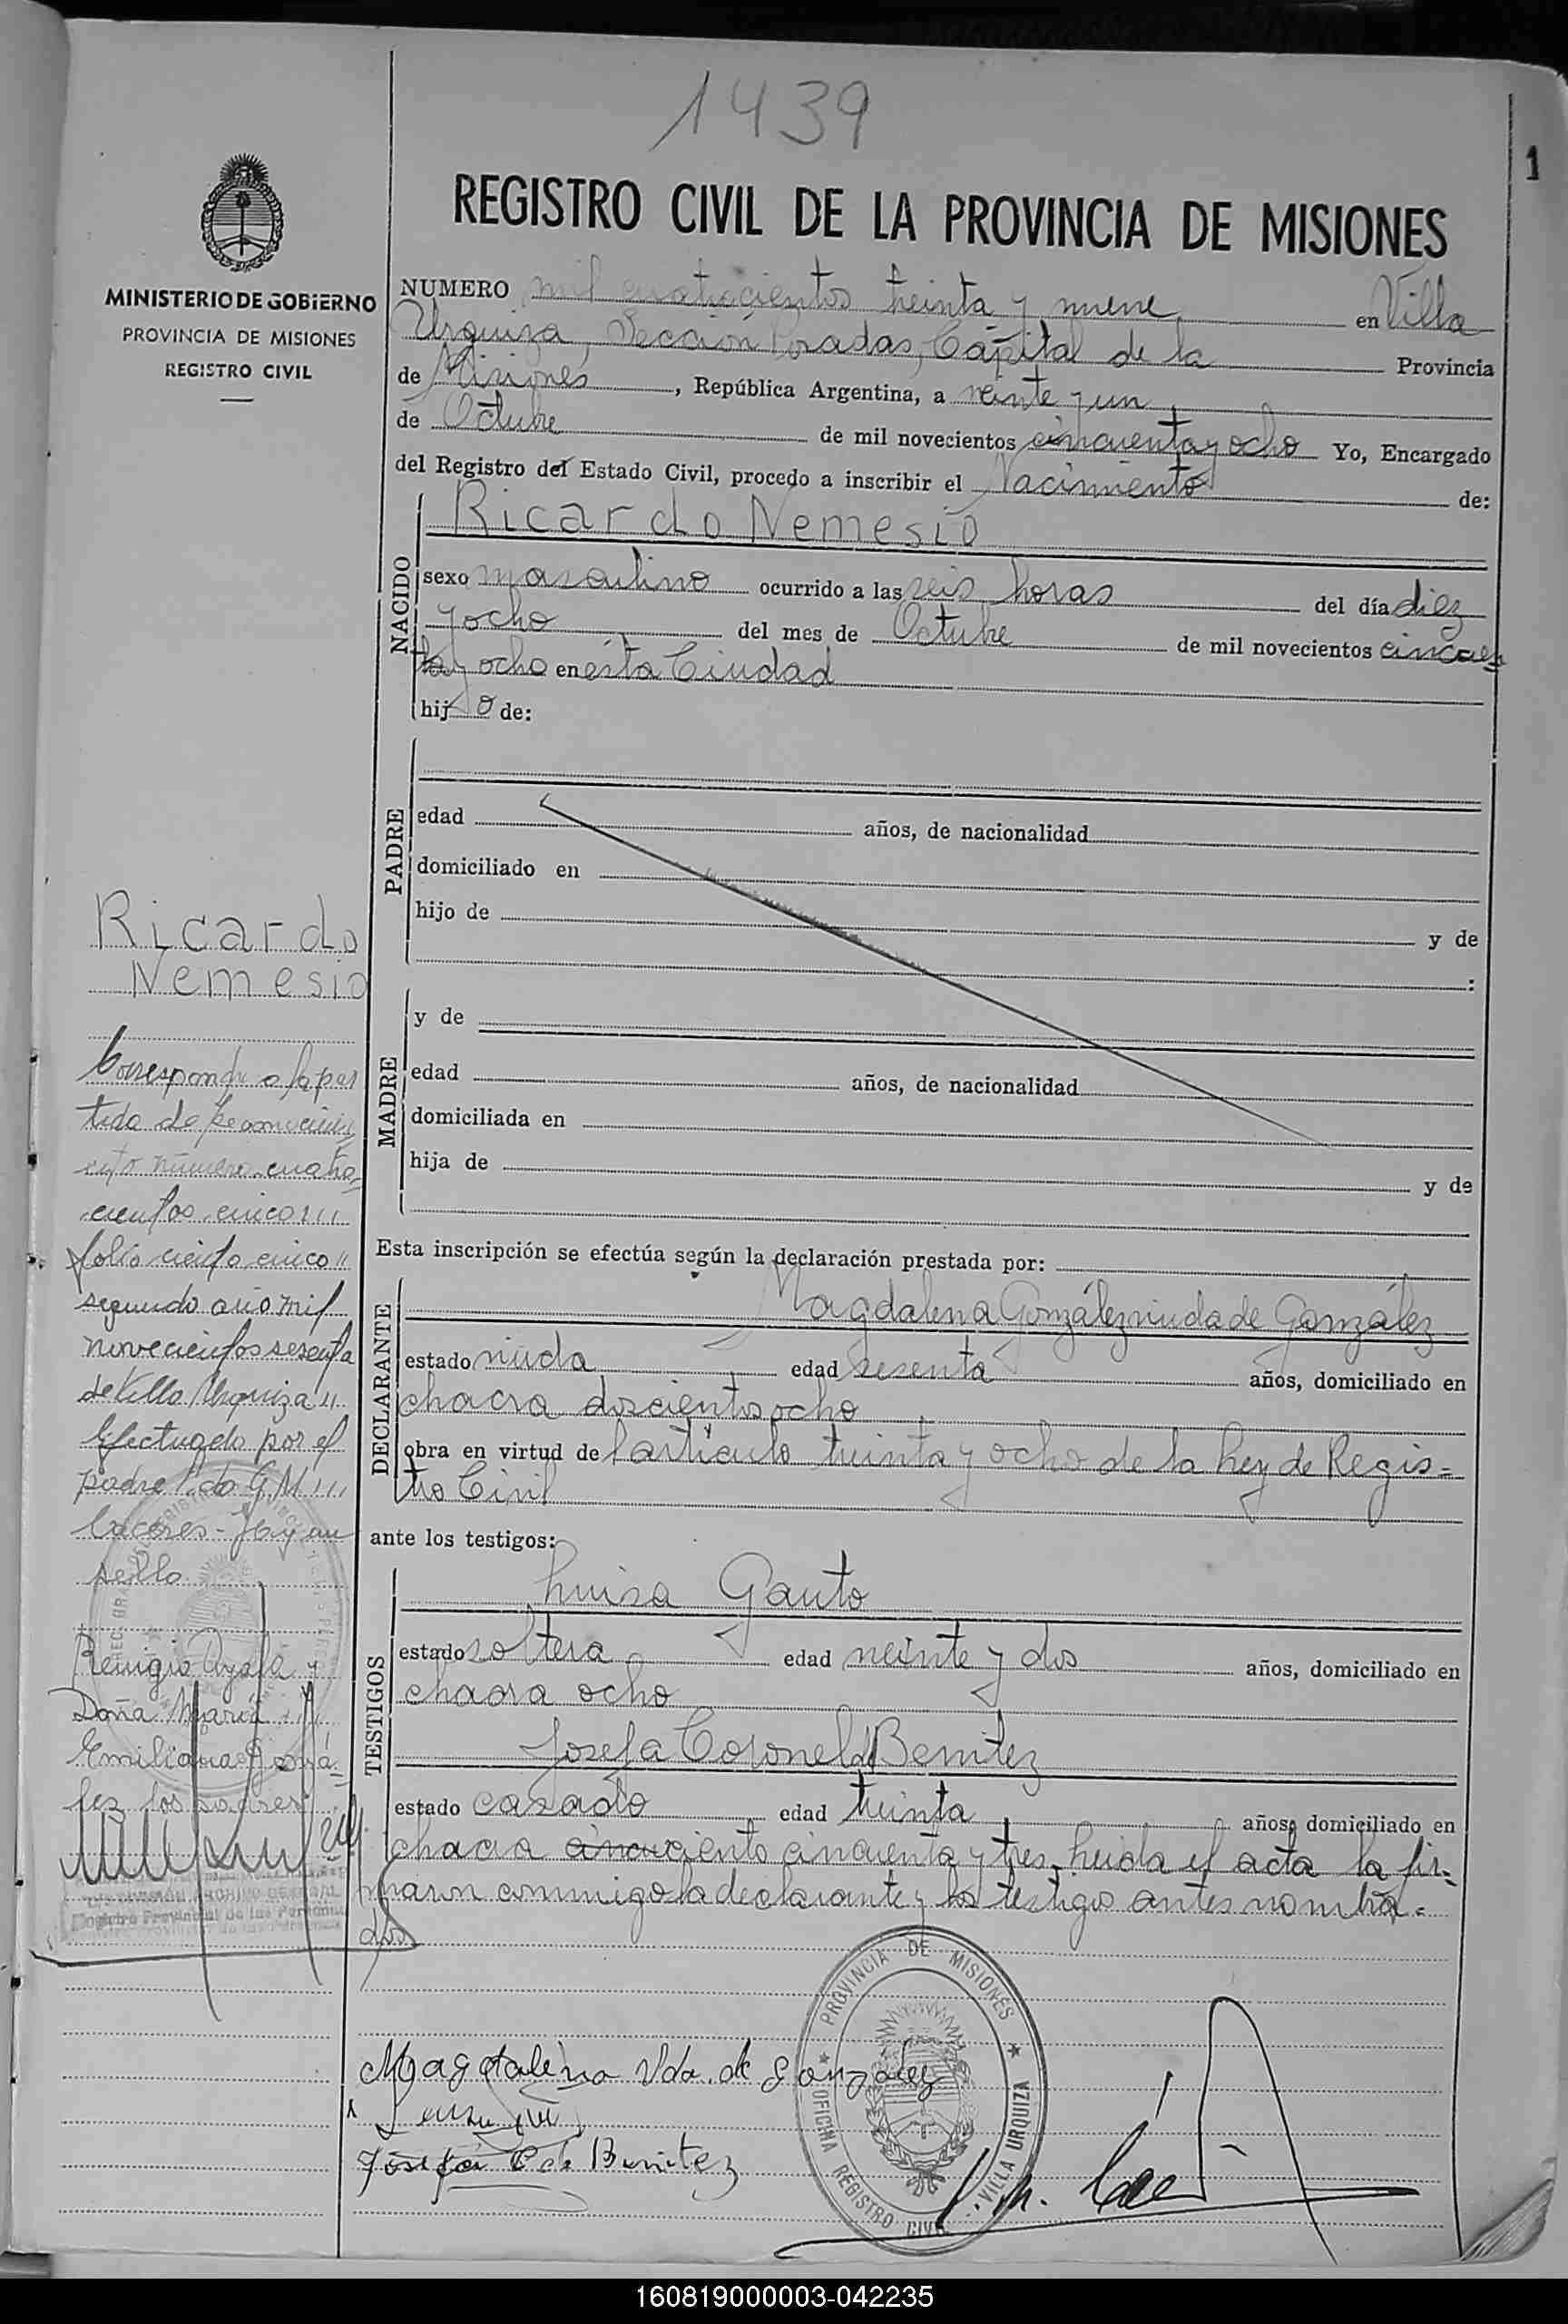 1439
1
MINISTERIO DE GOBIERNO
PROVINCIA DE MISIONES
REGISTRO CIVIL
REGISTRO CIVIL DE LA PROVINCIA DE MISIONES
NUMERO mil cuatrocientos treinta y nueve en Villa
Urquiza, Sección Posadas, Cápital de la Provincia
de Misiones, República Argentina, a veinte y un
de Octubre de mil novecientos cincuenta y ocho Yo, Encargado
del Registro del Estado Civil, procedo a inscribir el Nacimiento de:
NACIDO
Ricardo Nemesio
sexo masculino ocurrido a las seis horas del día diez
y ocho del mes de Octubre de mil novecientos cincuen=
ta y ocho en ésta Ciudad
hijo de:
PADRE
edad años, de nacionalidad
domiciliado en
hijo de y de
:
MADRE
y de
edad años, de nacionalidad
domiciliada en
hija de y de
Esta inscripción se efectúa según la declaración prestada por:
DECLARANTE
Magdalena González viuda de González
estado viuda edad sesenta años, domiciliado en
chacra doscientos ocho
obra en virtud de l artículo treinta y ocho de la Ley de Regis=
tro Civil
ante los testigos:
TESTIGOS
Luisa Gauto
estado soltera edad veinte y dos años, domiciliado en
chacra ocho
Josefa Coronel de Benitez
estado casado edad treinta años, domiciliado en
chacra ciento cincuenta y tres. Leida el acta la fir=
maron conmigo la declarante y los testigos antes nombra=
dos
Magdalena Vda. de Gonzalez
Josefa C de Benitez
PROVINCIA DE MISIONES
OFICINA REGISTRO CIVIL
VILLA URQUIZA
Ricardo
Nemesio
Corresponde a la par
tida de Reconocimi
ento número cuatro=
cientos cinco
folio ciento cinco
segundo año mil
novecientos sesenta
de Villa Urquiza
Efectuado por el
padre Fdo G.M
Caceres - Hay un
sello
Remigio Ayala y
Doña María
Emiliana Gonzá=
lez los padres
Registro Provincial de las Personas
160819000003-042235